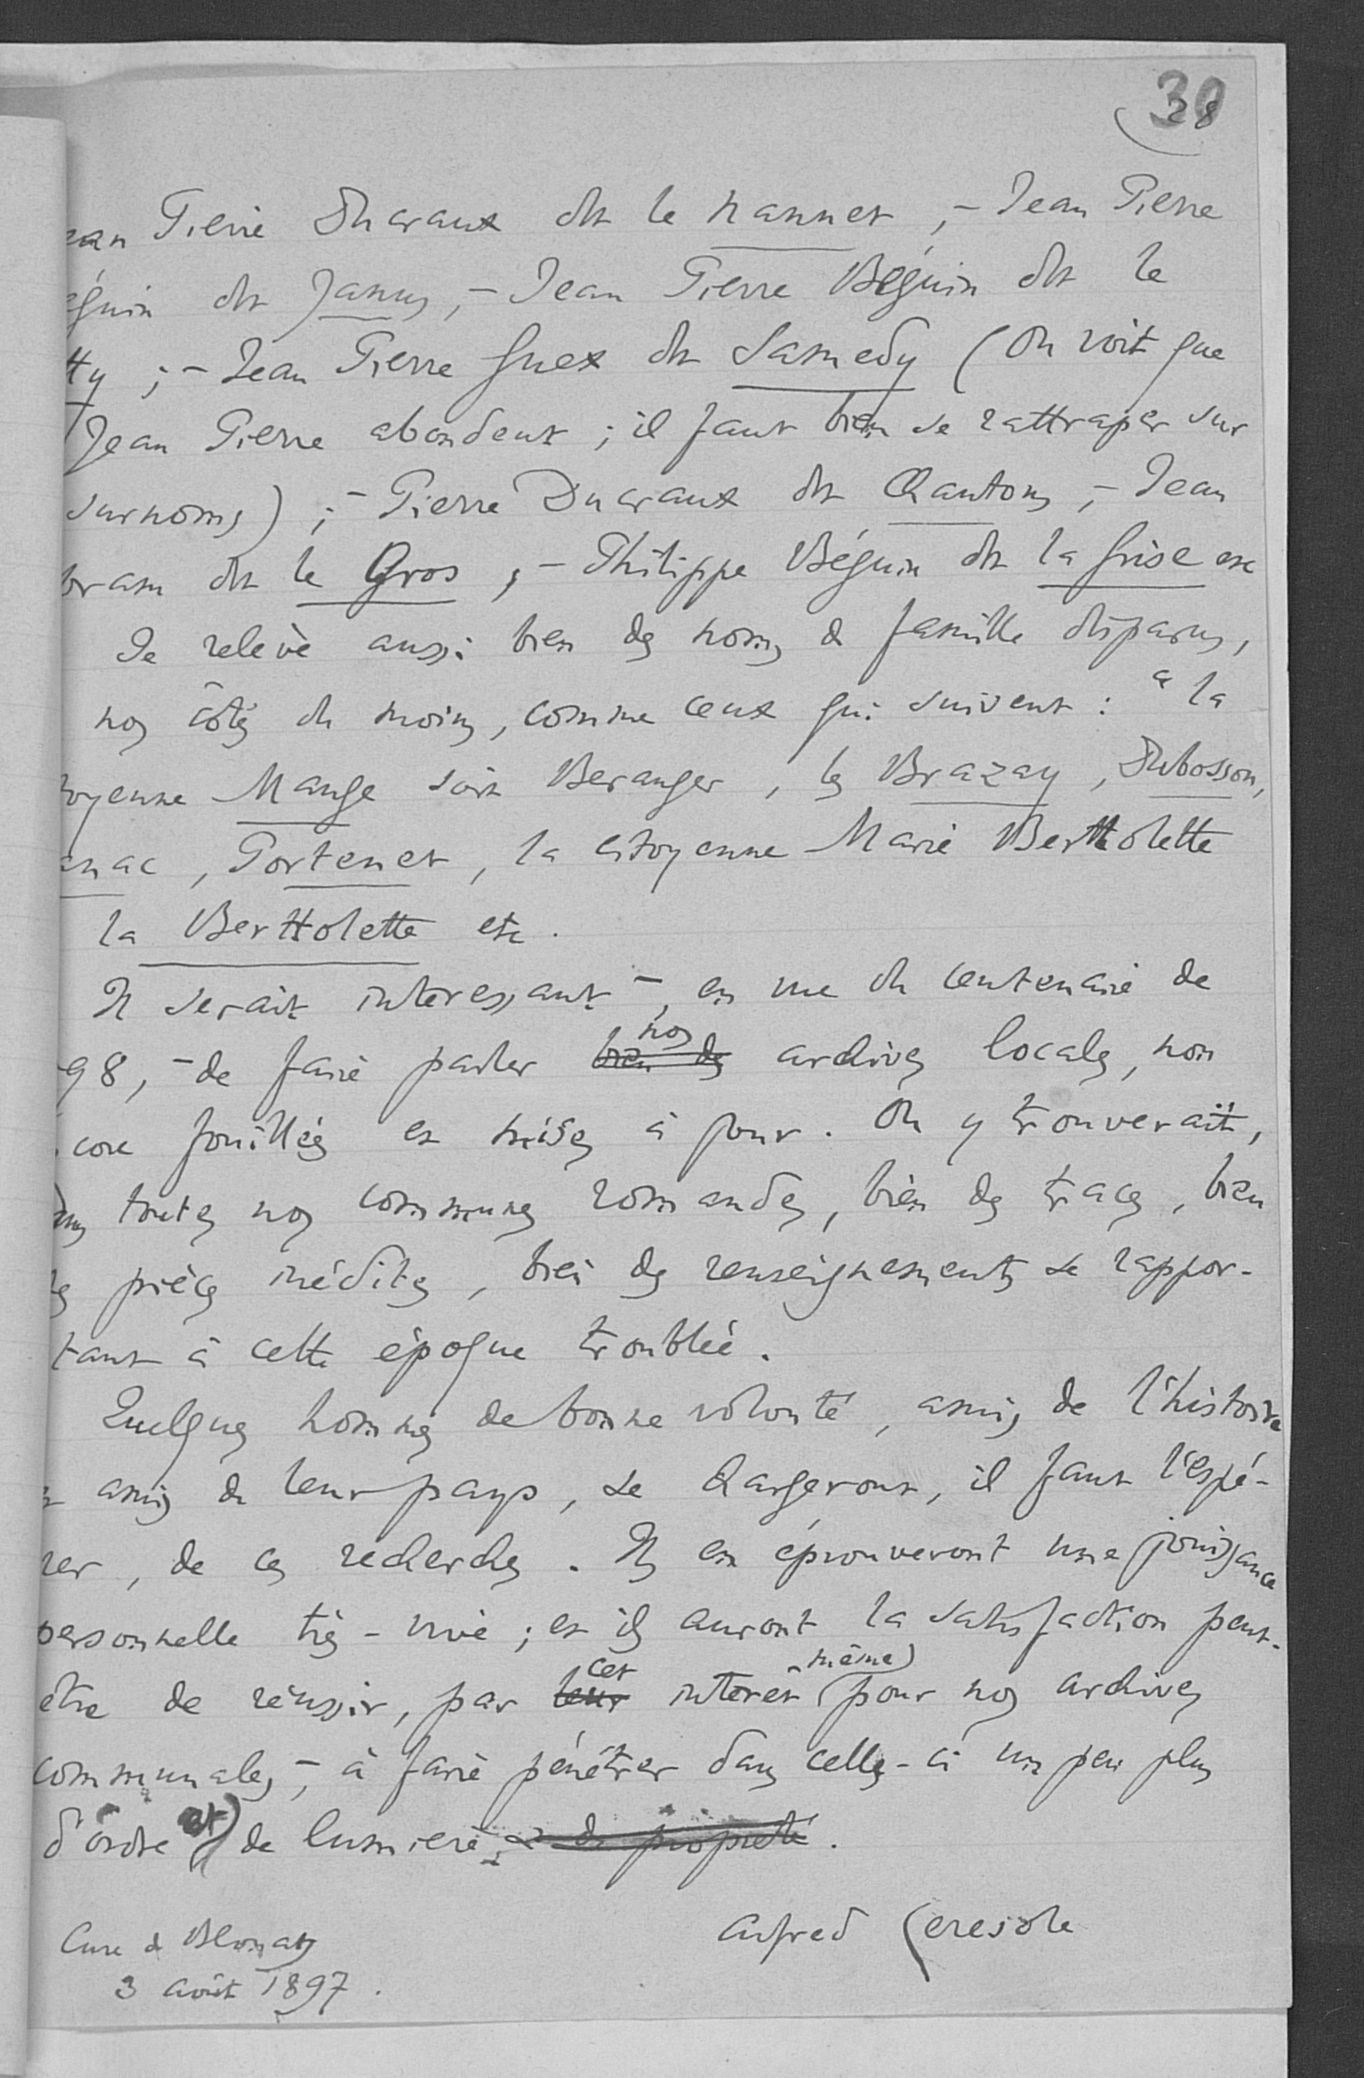 30
28
ean Pierre Ducraux dit le nannet, – Jean Pierre
éguin dit Janus, – Jean Pierre Béguin dit le
tty ; – Jean Pierre Guex dit Samedy (On voit que
Jean Pierre abondent ; il faut bien se rattraper sur
surnoms) ; – Pierre Ducraux dit Chantons, – Jean
bram dit le Gros, – Philippe Béguin dit la Grise etc
Je relève aussi bien des noms de famille disparus,
nos côtés du moins, comme ceux qui suivent : " la
toyenne Mange soit Beranger, les Brazay, Dubosson,
enac, Portenet, la citoyenne Marie Berttolette
la Berttolette etc.
Il serait intéressant –, en vue du centenaire de
98, – de faire parler bien des nos archives locales, non
core fouillées et mises à jour. On y trouverait,
ans toutes nos communes romandes, bien des traces, bien
es pièces inédites, bien des renseignements se rappor-
tant à cette époque troublée.
Quelques hommes de bonne volonté, amis de l'histoire
t amis de leur pays, se chargeront, il faut l'espé-
rer, de ces recherches. Ils en éprouveront une jouissance
personnelle très-vive ; et ils auront la satisfaction peut-
être de réussir, par leur cet intérêt même pour nos archives
communales, – à faire pénétrer dans celles-ci un peu plus
d'ordre et de lumière, et de propreté.
Alfred Ceresole
Cure de Blonay
3 août 1897.